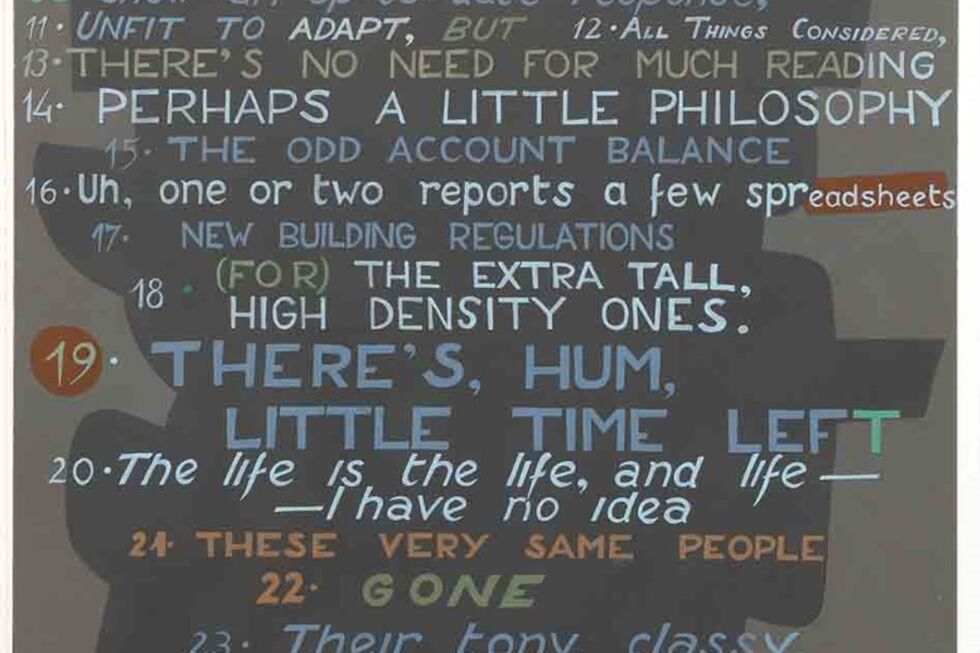 show an up to date response,
11. UNFIT TO ADAPT, BUT 12. ALL THINGS CONSIDERED,
13. THERE'S NO NEED FOR MUCH READING
14. PERHAPS A LITTLE PHILOSOPHY
15. THE ODD ACCOUNT BALANCE
16. Uh, one or two reports a few spreadsheets
17. NEW BUILDING REGULATIONS
18. (FOR) THE EXTRA TALL,
HIGH DENSITY ONES.
19. THERE'S, HUM,
LITTLE TIME LEFT
20. The life is the life, and life —
— I have no idea
21. THESE VERY SAME PEOPLE
22. GONE
23. Their tony classy